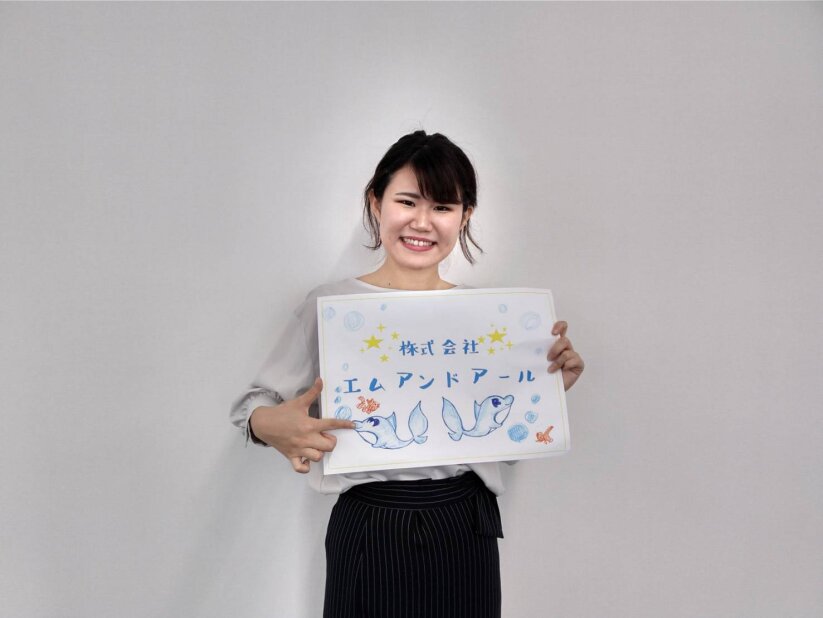 株式会社
エムアンドアール